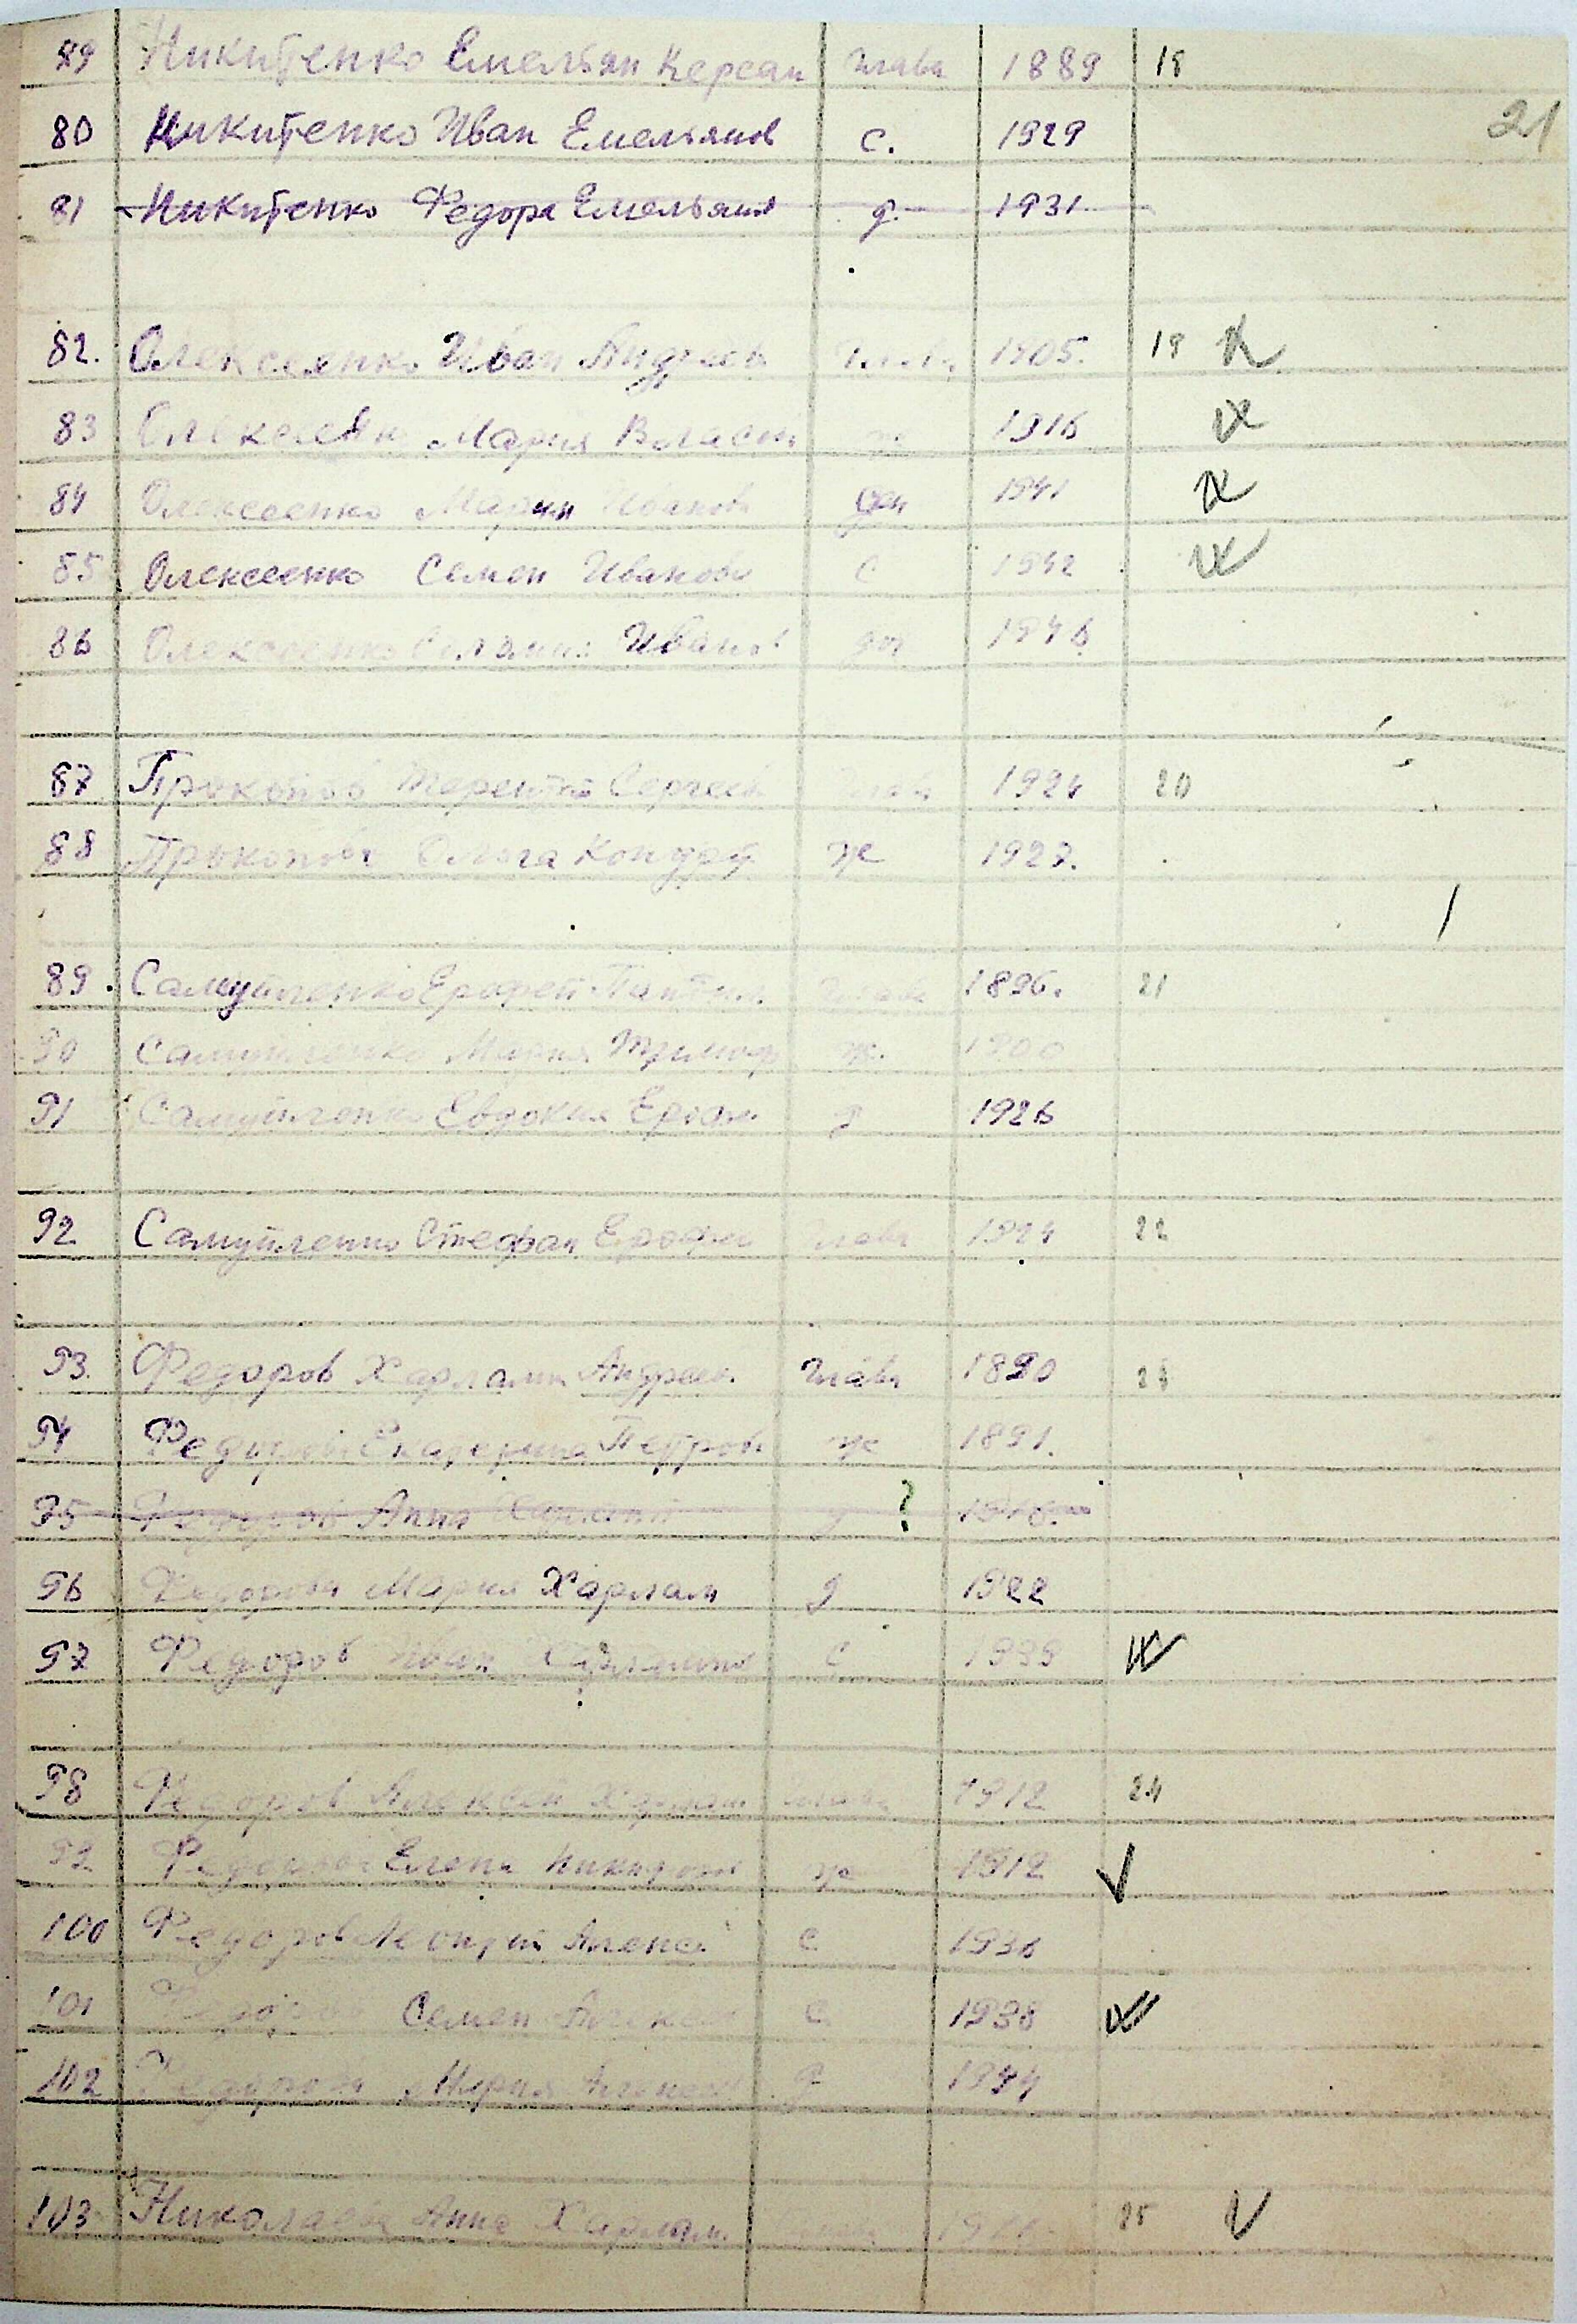 89 Никитенко Емельян Керсан глава 1889 18
21
80 Никитенко Иван Емельянов с. 1929
81 Никитенко Федора Емельянов д. 1931
82. Олексеянко Иван Андреев глава 1905. 19
83 Мария Власов ж 1916
84 Олексеенко Мария Иванов доч 1941
85 Олексеенко Семен Иванови с 1942
86 Олексеенко Иванов доч 1946
87 Прокопов Терентий Сергеев глав 1924 20
88 Прокопова Ольга Кондрат ж 1927.
89. Самуйленко Ерофей Пантел. глава 1896. 21
90 Самуйленко Мария Тимоф ж. 1900
91 Самуйленко Евдокия Ерофе д 1926
92 Самуйленко Стефан Ерофее глава 1924 22
93. Федоров Харлами Андреев глава 1890 23
94 Федорова Екатерина Петров ж 1891.
95 Анна д ?
96 Федорова Мария Харлам д 1922
97 Федоров Иван Харламов с 1939
98 Федоров Алексей Харлам глава 1912 24
99 Федорова Елена Никифоров ж 1912
100 Федоров Леонтий Алексе с 1936
101 Семен Алексе с 1938
102 Федорова Мария Алексеев д 1944
103 Николаева Анна Харлам. 25